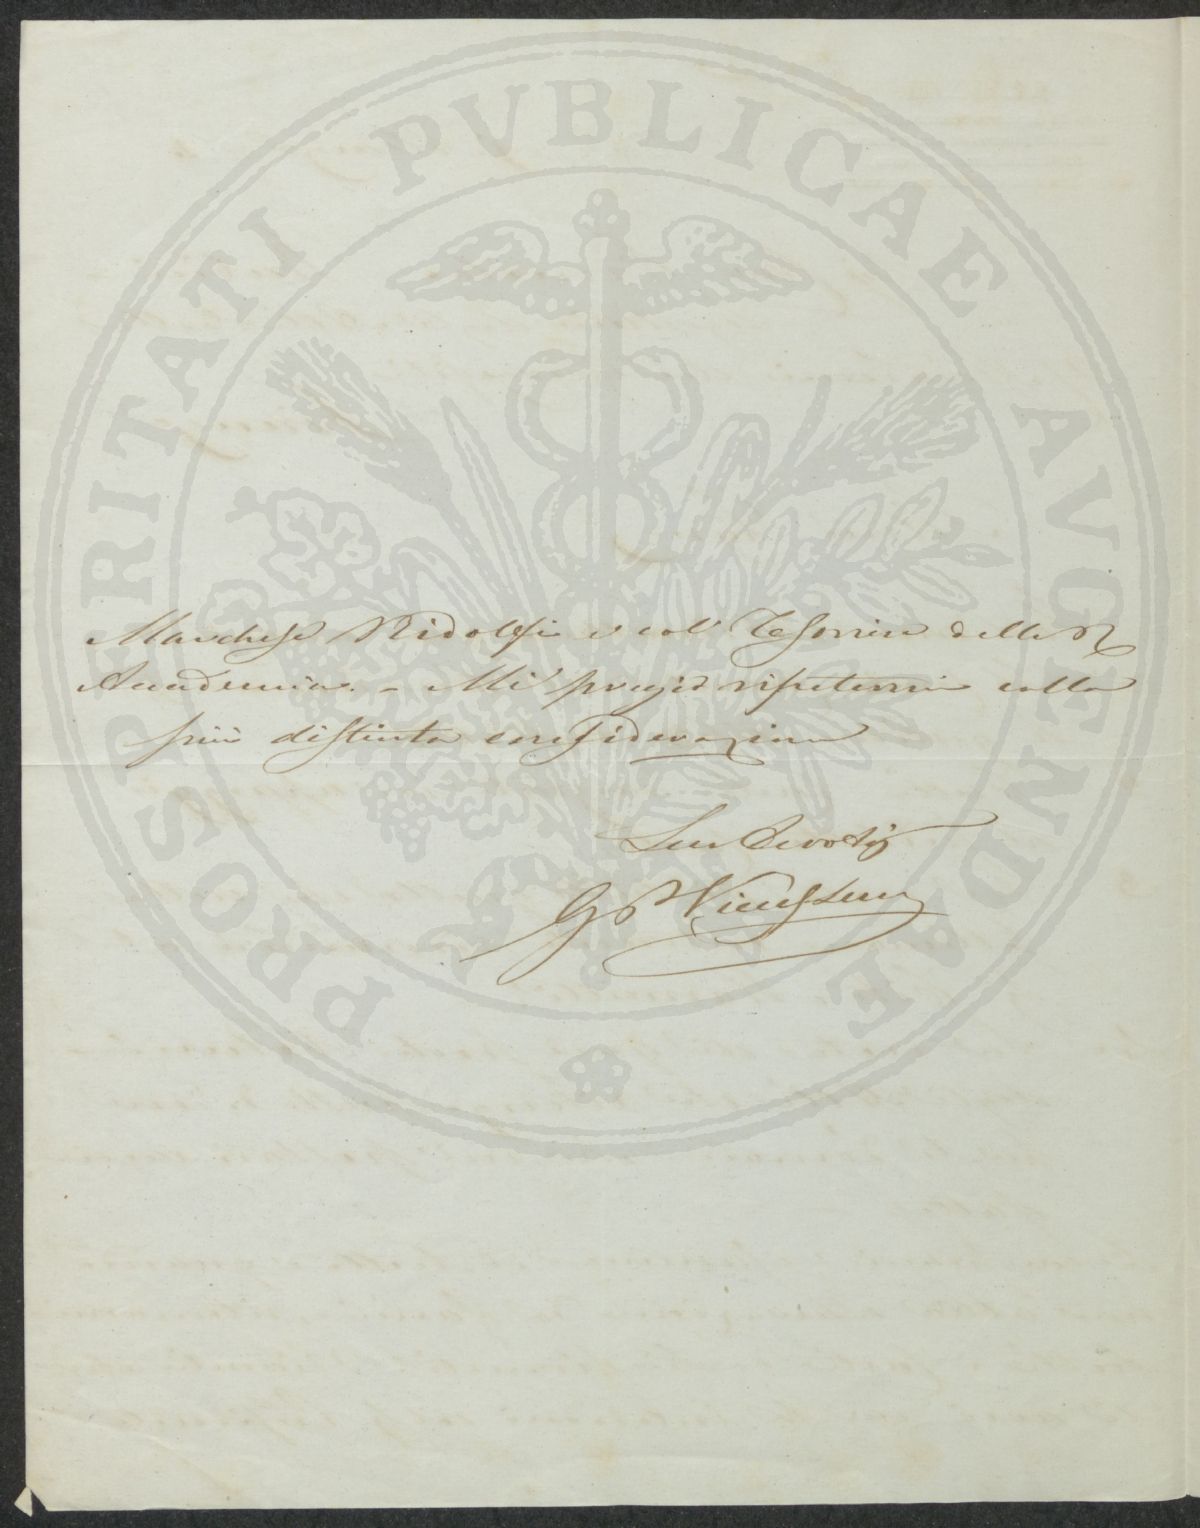 PROSPERITATI PVBLICAE AVGENDAE
Marchese Ridolfi e col Tesoriere della R
Accademia. - Mi pregio ripetermi colla
più distinta considerazione
Suo Devotis
G P Vieusseux